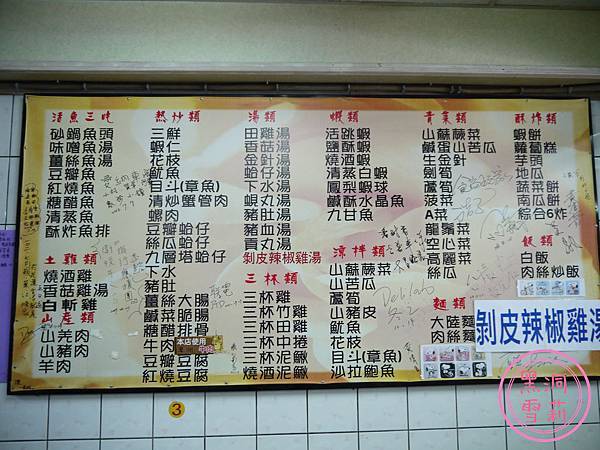 活魚三吃
砂鍋魚頭
味噌魚湯
薑絲魚湯
豆瓣魚
紅燒魚
糖醋魚
清蒸魚
酥炸魚排
土雞類
燒酒雞
香菇雞湯
白斬雞
山產類
山羌肉
山豬肉
羊肉
熱炒類
三鮮
蝦仁
花枝
魷魚
目斗(章魚)
清炒蟹管肉
螺肉
豆瓣蛤仔
絲瓜蛤仔
九層塔蛤仔
下水
豬肉
薑絲大腸
鹹菜大腸
糖醋排骨
牛肉
豆瓣豆腐
紅燒豆腐
本店使用
湯類
田雞湯
香菇湯
金針湯
蛤仔湯
下水湯
蜆丸湯
豬肚湯
豬血湯
貢丸湯
剝皮辣椒雞湯
三杯類
三杯雞
三杯竹雞
三杯田雞
三杯中捲
三杯泥鰍
燒酒泥鰍
蝦類
活跳蝦
鹽酥蝦
燒酒蝦
清蒸白蝦
鳳梨蝦球
鹹酥水晶魚
九甘魚
涼拌類
山蘇
山蕨菜
蘆筍
山豬皮
魷魚
花枝
目斗(章魚)
沙拉鮑魚
青菜類
山蘇蕨菜
鹹蛋山苦瓜
生金針
劍筍
蘆筍
菠菜
A菜
龍鬚菜
空心菜
高麗菜
麵類
大陸麵
肉絲麵
酥炸類
蝦餅
蘿蔔糕
芋頭
地瓜
蔬菜餅
南瓜餅
綜合6炸
飯類
白飯
肉絲炒飯
剝皮辣椒雞湯
3
黑洞
雪莉